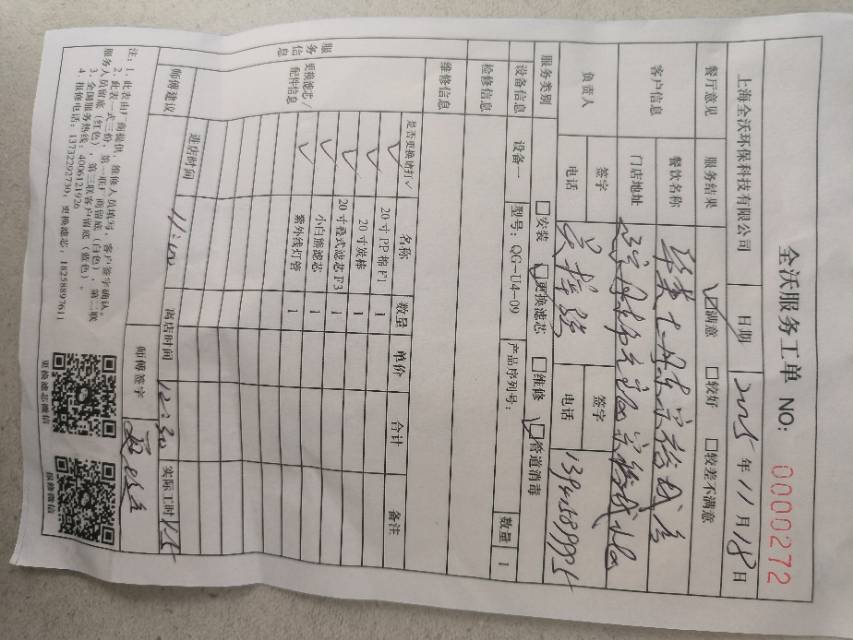 全沃服务工单 NO: 0000272
上海全沃环保科技有限公司 日期 2025年11月18日
餐厅意见 服务结果 ☑满意 □较好 □较差不满意
客户信息 餐饮名称
门店地址
负责人 签字 签字
电话 电话
服务类别 □安装 ☑更换滤芯 □维修 ☑管道消毒
设备信息 设备一 型号: QG-U4-09 产品序列号: 数量 1
检修信息
维修信息
服务信息
更换滤芯/配件信息
是否更换请打✓ 名称 数量 单价 合计 备注
✓ 20寸PP棉F1 1
✓ 20寸炭棒 1
✓ 20寸叠式滤芯F3 1
✓ 小白熊滤芯 1
✓ 紫外线灯管 1
师傅建议
进店时间 11:00 离店时间 12:30 实际工时 1.5
师傅签字
注: 1、此表由厂商提供, 维修人员填写, 客户签字确认。
2、此表一式三份, 第一联厂商留底 (白色), 第二联
服务人员留底 (红色), 第三联客户留底 (蓝色)。
3、全国服务热线: 4006121926
4、报修电话: 13732292730, 更换滤芯: 18258897611
更换滤芯微信
报修微信